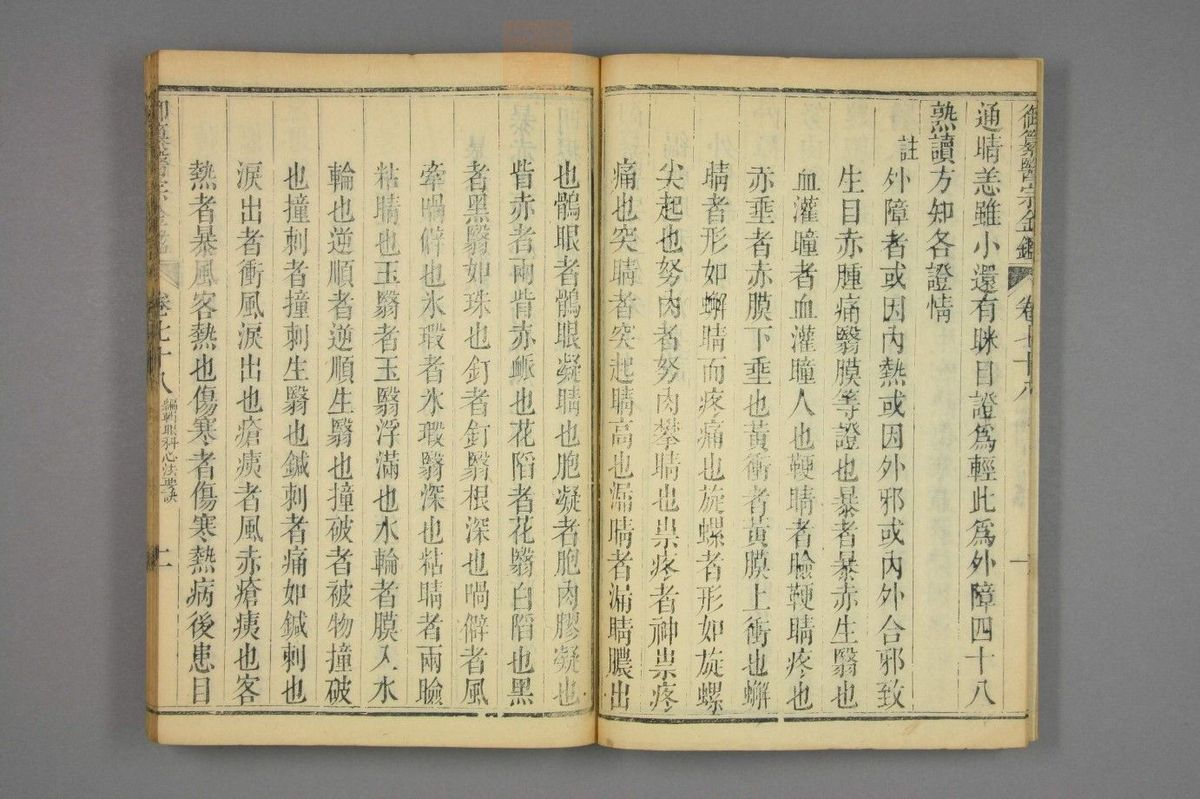 御纂醫宗金鑑 卷七十八 一
通睛恙雖小還有眯目證爲輕此爲外障四十八
熟讀方知各證情
註
外障者或因內熱或因外邪或內外合邪致
生目赤腫痛翳膜等證也暴者暴赤生翳也
血灌瞳者血灌瞳人也鞕睛者瞼鞕睛疼也
赤垂者赤膜下垂也黃衝者黃膜上衝也蠏
睛者形如蠏睛而疼痛也旋螺者形如旋螺
尖起也努肉者努肉攀睛也祟疼者神祟疼
痛也突睛者突起睛高也漏睛者漏睛膿出
也鶻眼者鶻眼凝睛也胞凝者胞肉膠凝也
眥赤者兩眥赤脈也花陷者花翳白陷也黑
者黑翳如珠也釘者釘翳根深也喎僻者風
牽喎僻也氷瑕者氷瑕翳深也粘睛者兩瞼
粘睛也玉翳者玉翳浮滿也水輪者膜入水
輪也逆順者逆順生翳也撞破者被物撞破
也撞刺者撞刺生翳也鍼刺者痛如鍼刺也
淚出者衝風淚出也瘡痍者風赤瘡痍也客
熱者暴風客熱也傷寒者傷寒熱病後患目
卷七十八 編輯眼科心法要訣 二